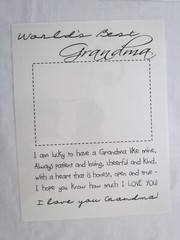 World's Best
Grandma
I am lucky to have a Grandma like mine,
Always patient and loving, cheerful and kind,
with a heart that is honest, open and true -
I hope you know how much I LOVE YOU!
I love you Grandma